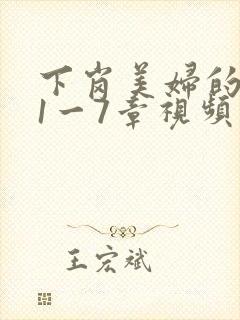 下岗美婦的
1一7章視頻
王宏斌